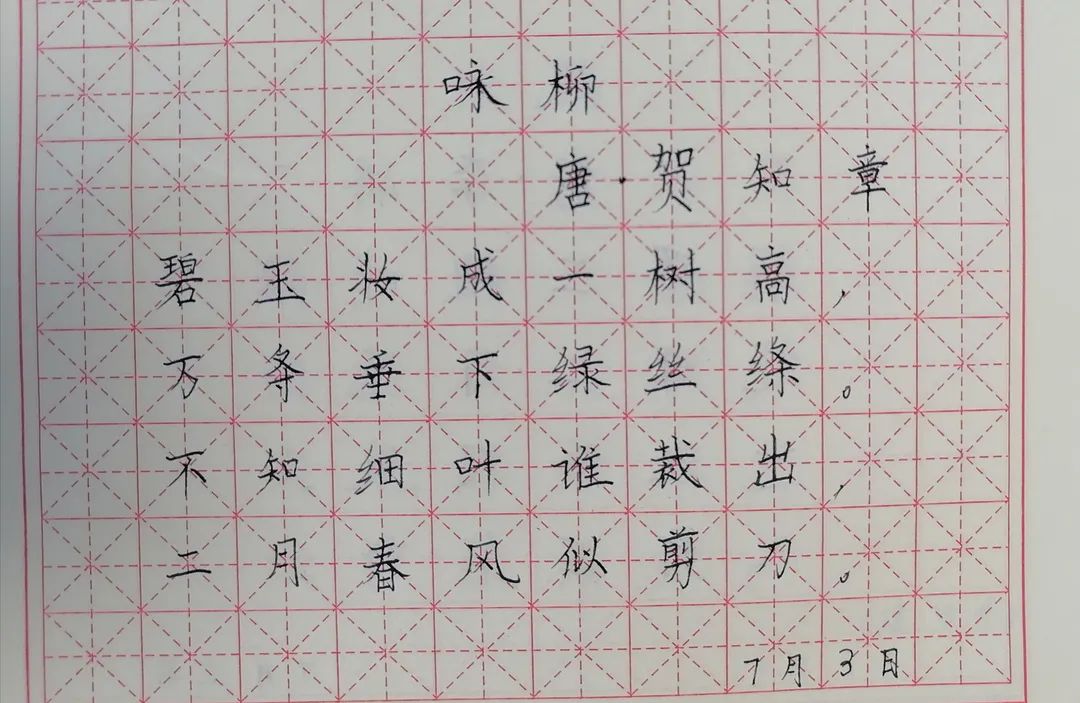 咏柳
唐·贺知章
碧玉妆成一树高，
万条垂下绿丝绦。
不知细叶谁裁出，
二月春风似剪刀。
7月3日